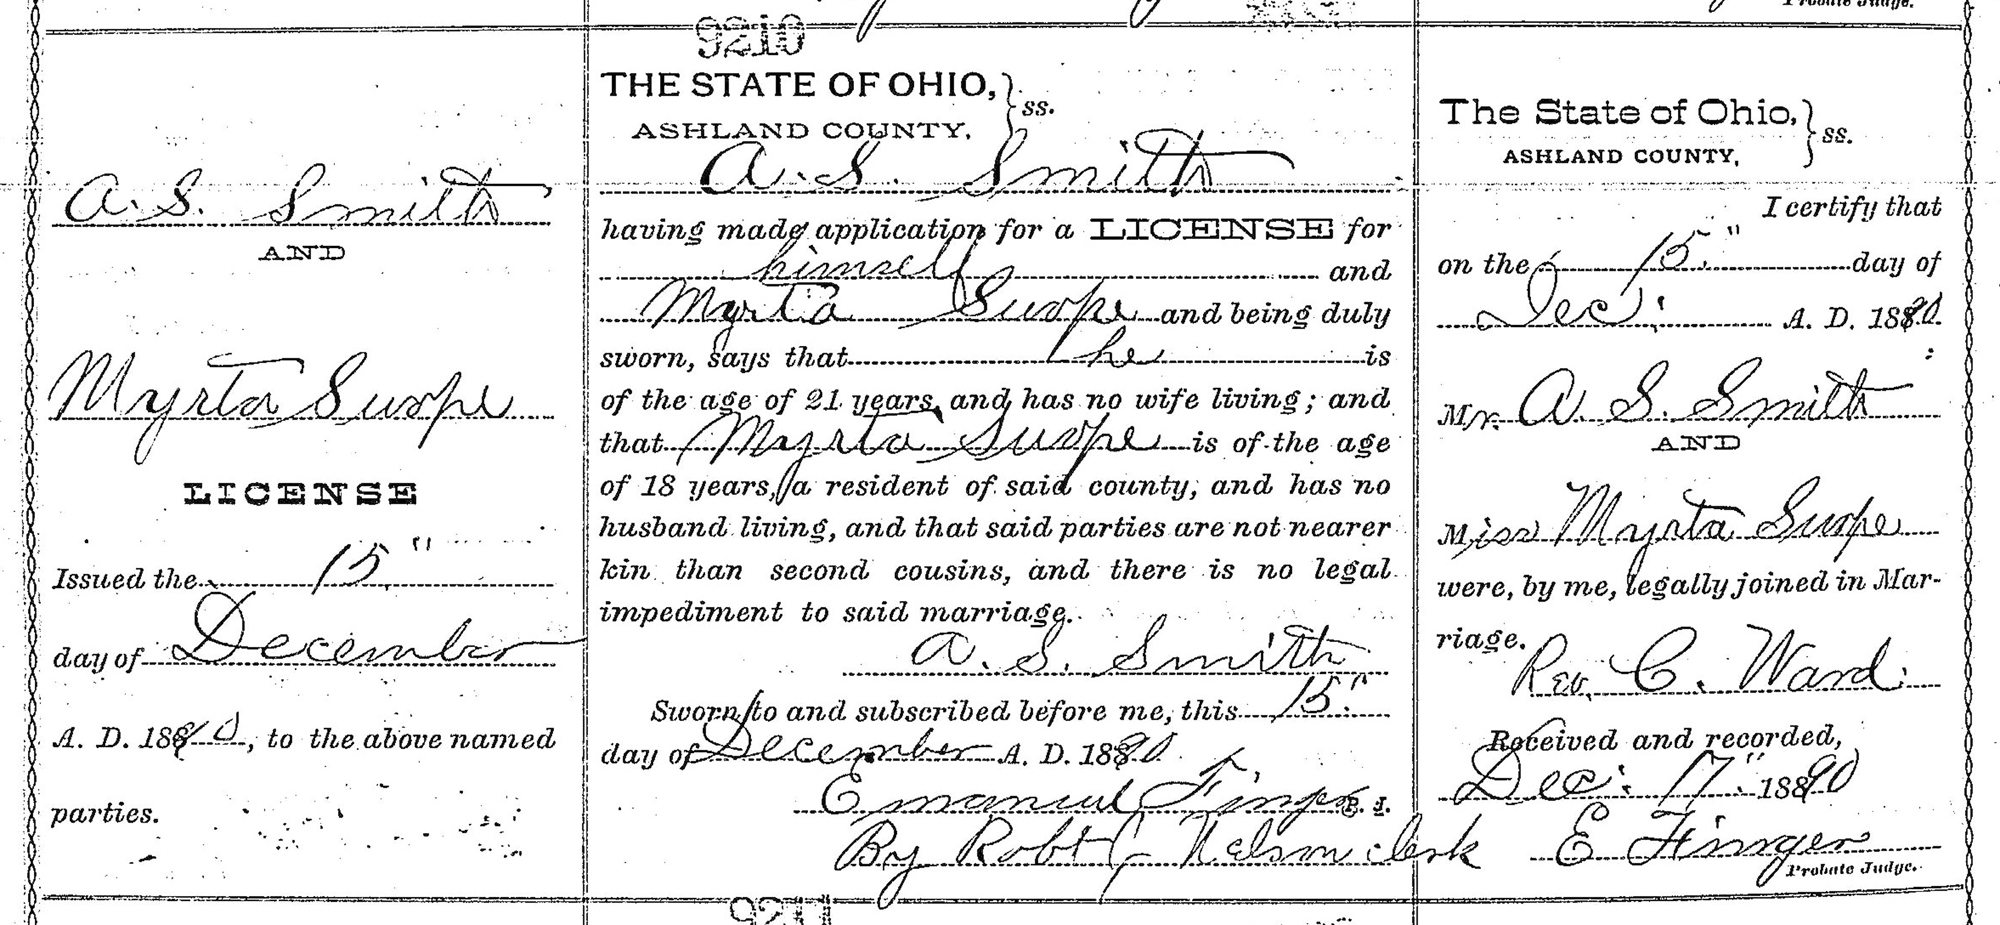 Probate Judge.
9210
A. S. Smith
AND
Myrta Swope
LICENSE
Issued the 15"
day of December
A. D. 1890, to the above named
parties.
THE STATE OF OHIO, } ss.
ASHLAND COUNTY,
A. S. Smith
having made application for a LICENSE for
himself and
Myrta Swope and being duly
sworn, says that he is
of the age of 21 years, and has no wife living; and
that Myrta Swope is of the age
of 18 years, a resident of said county, and has no
husband living, and that said parties are not nearer
kin than second cousins, and there is no legal
impediment to said marriage.
A. S. Smith
Sworn to and subscribed before me, this 15"
day of December A. D. 1890
Emanuel Finger P. J.
By Robt C Nelson clerk
The State of Ohio, } ss.
ASHLAND COUNTY,
I certify that
on the 15" day of
Dec: A. D. 1890.
Mr. A. S. Smith
AND
Miss Myrta Swope
were, by me, legally joined in Mar-
riage.
Rev. C. Ward
Received and recorded,
Dec: 17" 1890
E Finger
Probate Judge.
9211